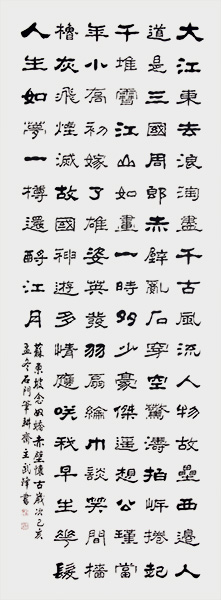 大江東去浪淘盡千古風流人物故壘西邊人
道是三國周郎赤壁亂石穿空驚濤拍岸捲起
千堆雪江山如畫一時多少豪傑遙想公瑾當
年小喬初嫁了雄姿英發羽扇綸巾談笑間檣
櫓灰飛煙滅故國神遊多情應笑我早生華髮
人生如夢一樽還酹江月
蘇東坡念奴嬌赤壁懷古歲次己亥
孟冬石門筆耕齋主武書